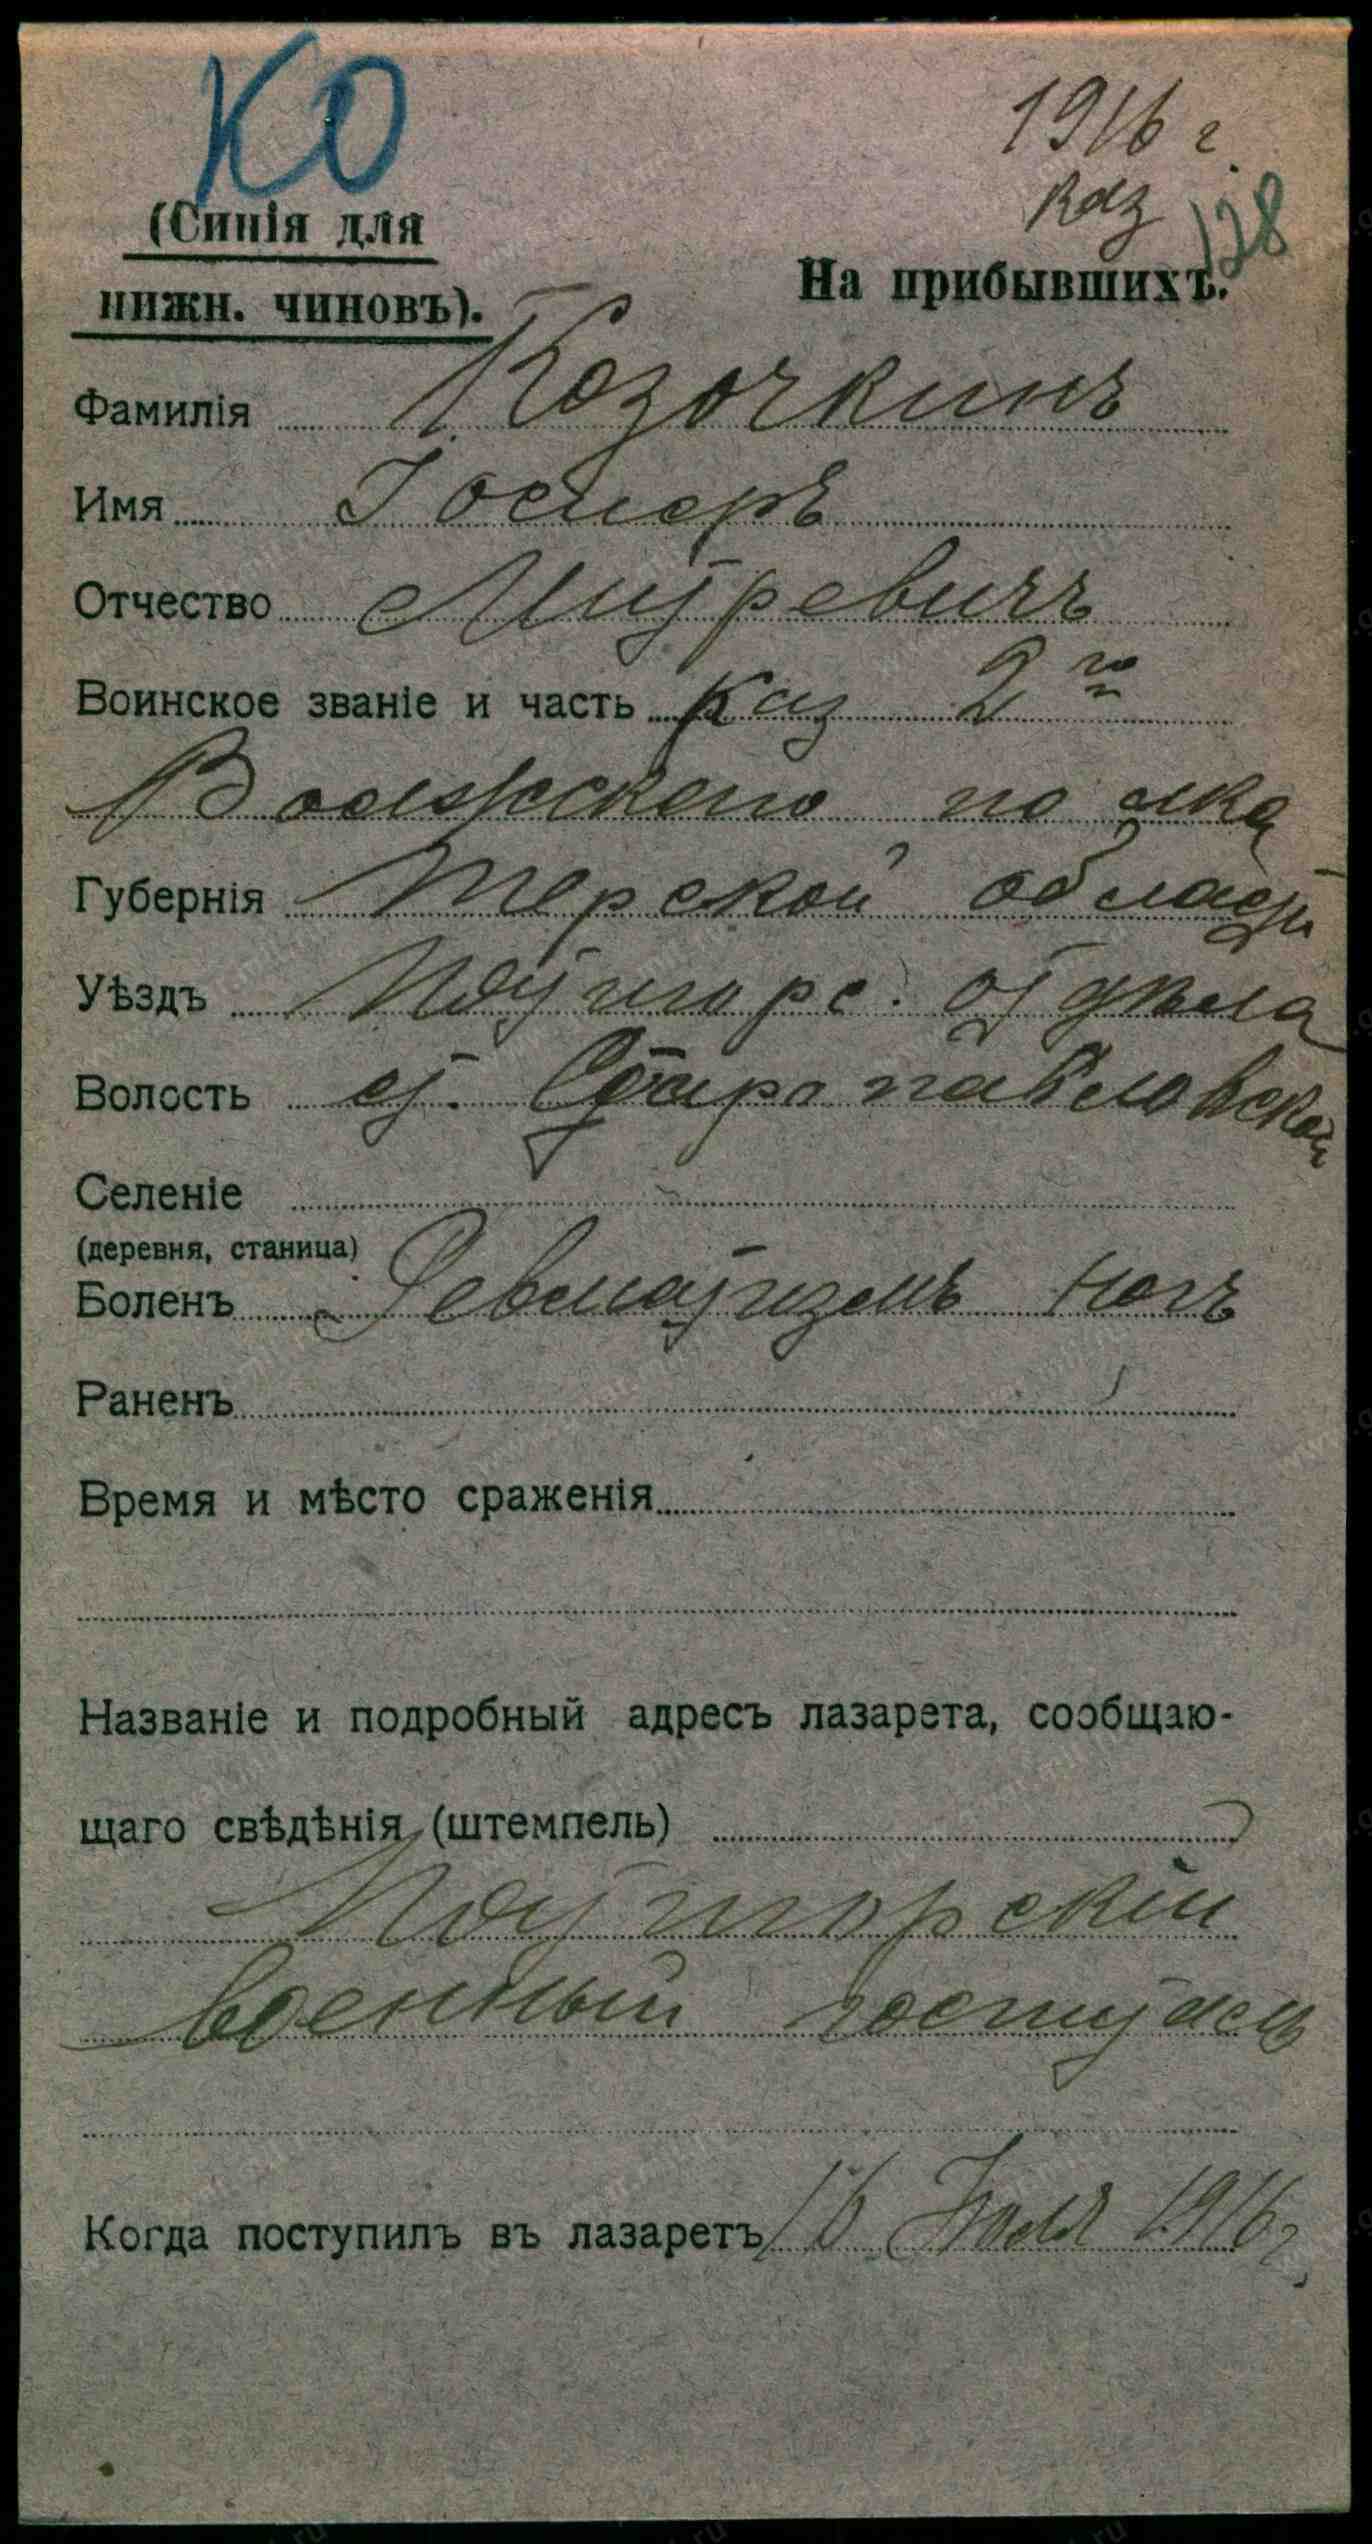 КО
1916 г.
каз
128
(Синія для
нижн. чиновъ).
На прибывшихъ.
Фамилія Козочкинъ
Имя
Отчество
Воинское званіе и часть каз 2го
Волжскаго полка
Губернія Терской области
Уѣздъ Пятигорс. отдѣла
Волость ст. Старопавловской
Селеніе
(деревня, станица)
Боленъ Ревматизмъ ногъ
Раненъ
Время и мѣсто сраженія
Названіе и подробный адресъ лазарета, сообщаю-
щаго свѣдѣнія (штемпель)
Пятигорскій
военный госпиталь
Когда поступилъ въ лазаретъ 16 Іюля 1916 г.